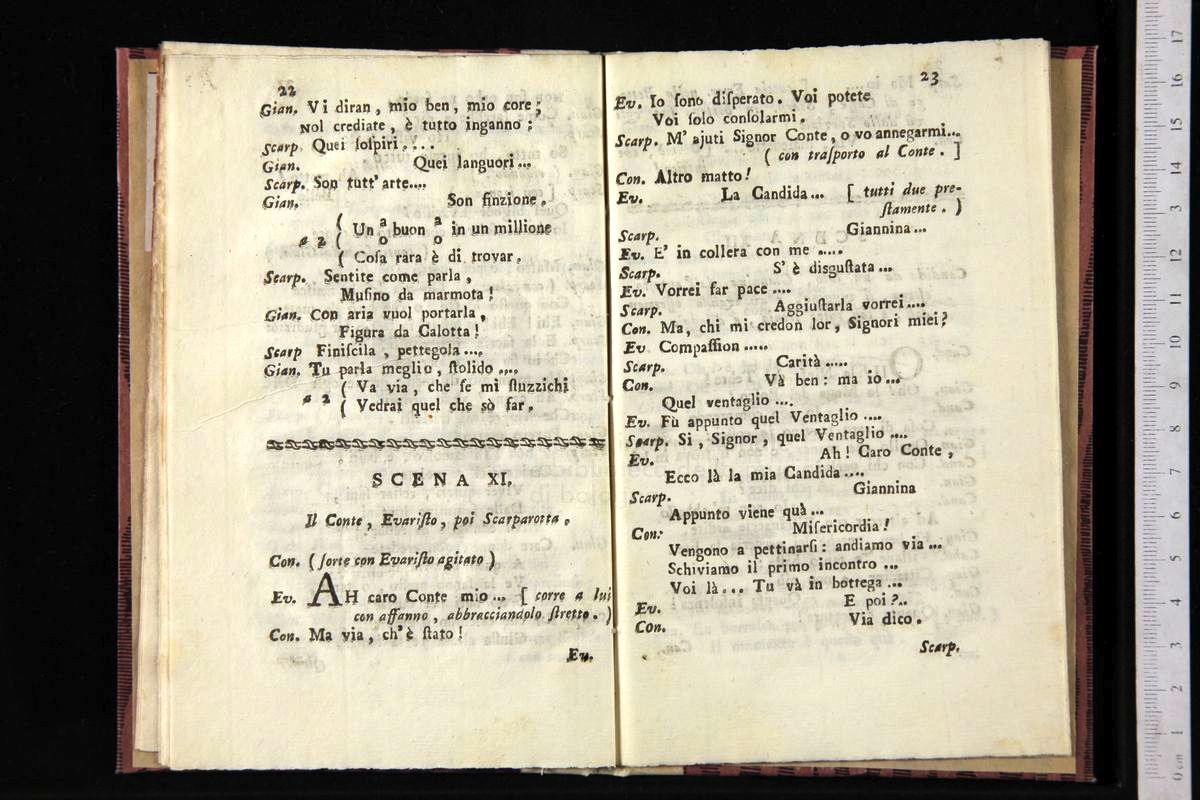 22
Gian. Vi diran, mio ben, mio core;
Nol crediate, è tutto inganno:
Scarp Quei ſoſpiri....
Gian. Quei languori...
Scarp. Son tutt' arte....
Gian. Son finzione.
( Un a/o buon a/o in un millione
a 2 (
( Coſa rara è di trovar.
Scarp. Sentite come parla,
Muſino da marmota!
Gian. Con aria vuol portarla,
Figura da Calotta!
Scarp Finiſcila, pettegola....
Gian. Tu parla meglio, ſtolido....
( Va via, che ſe mi ſtuzzichi
a 2 ( Vedrai quel che sò far.
SCENA XI.
Il Conte, Evariſto, poi Scarparotta.
Con. (ſorte con Evariſto agitato)
Ev. AH caro Conte mio... [ corre a lui
con affanno, abbracciandolo ſtretto. )
Con. Ma via, ch'è ſtato!
Ev.
23
Ev. Io ſono diſperato. Voi potete
Voi ſolo conſolarmi.
Scarp. M' ajuti Signor Conte, o vo annegarmi...
( con traſporto al Conte. ]
Con. Altro matto!
Ev. La Candida... [ tutti due pre-
ſtamente. )
Scarp. Giannina...
Ev. E' in collera con me .....
Scarp. S' è disguſtata...
Ev. Vorrei far pace....
Scarp. Aggiuſtarla vorrei....
Con. Ma, chi mi credon lor, Signori miei?
Ev Compaſſion.....
Scarp. Carità.....
Con. Và ben: ma io...
Quel ventaglio....
Ev. Fù appunto quel Ventaglio....
Scarp. Si, Signor, quel Ventaglio....
Ev. Ah! Caro Conte,
Ecco là la mia Candida....
Scarp. Giannina
Appunto viene quà...
Con: Miſericordia!
Vengono a pettinarſi: andiamo via...
Schiviamo il primo incontro...
Voi là... Tu và in bottega...
Ev. E poi?..
Con. Via dico.
Scarp.
0 cm 1 2 3 4 5 6 7 8 9 10 11 12 13 14 15 16 17